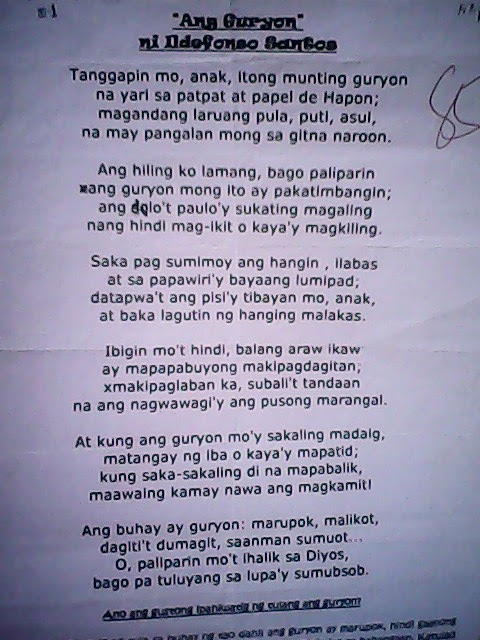 #1
"Ang Guryon"
ni Ildefonso Santos
Tanggapin mo, anak, itong munting guryon
na yari sa patpat at papel de Hapon;
magandang laruang pula, puti, asul,
na may pangalan mong sa gitna naroon.
Ang hiling ko lamang, bago paliparin
xang guryon mong ito ay pakatimbangin;
ang dolo't paulo'y sukating magaling
nang hindi mag-ikit o kaya'y magkiling.
Saka pag sumimoy ang hangin , ilabas
at sa papawiri'y bayaang lumipad;
datapwa't ang pisi'y tibayan mo, anak,
at baka lagutin ng hanging malakas.
Ibigin mo't hindi, balang araw ikaw
ay mapapabuyong makipagdagitan;
xmakipaglaban ka, subali't tandaan
na ang nagwawagi'y ang pusong marangal.
At kung ang guryon mo'y sakaling madaig,
matangay ng iba o kaya'y mapatid;
kung saka-sakaling di na mapabalik,
maawaing kamay nawa ang magkamit!
Ang buhay ay guryon: marupok, malikot,
dagiti't dumagit, saanman sumuot...
O, paliparin mo't ihalik sa Diyos,
bago pa tuluyang sa lupa'y sumubsob.
Ano ang gustong ipahiwatig ng tulang ang guryon?
sa buhay ng tao dahil ang guryon ay marupok, hindi